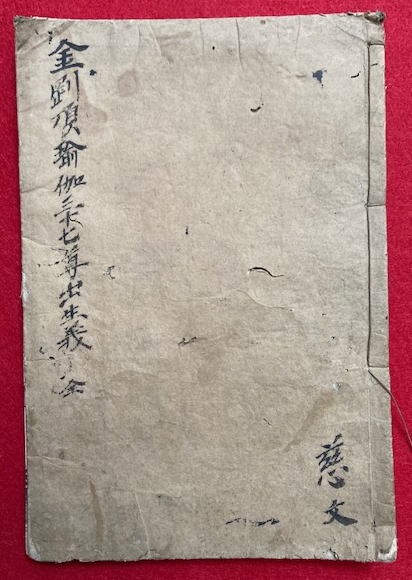 金剛頂瑜伽三十七尊出生義 全
慈文